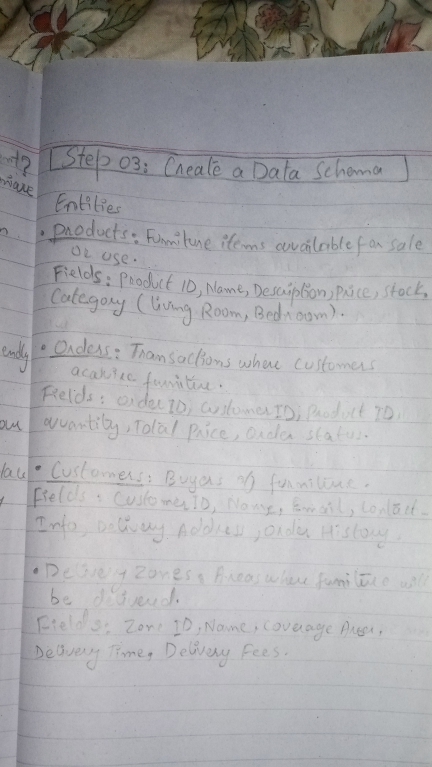 Step 03: Create a Data Schema
Entities
• Products: Furniture items available for sale
or use.
Fields: Product ID, Name, Description, Price, Stock,
Category (Living Room, Bedroom).
• Orders: Transactions where customers
acquire furniture.
Fields: Order ID, Customer ID, Product ID,
quantity, Total Price, Order status.
• Customers: Buyers of furniture.
Fields: Customer ID, Name, Email, Contact
Info, Delivery Address, Order History.
• Delivery Zones: Areas where furniture will
be delivered.
Fields: Zone ID, Name, Coverage Area,
Delivery Time, Delivery Fees.